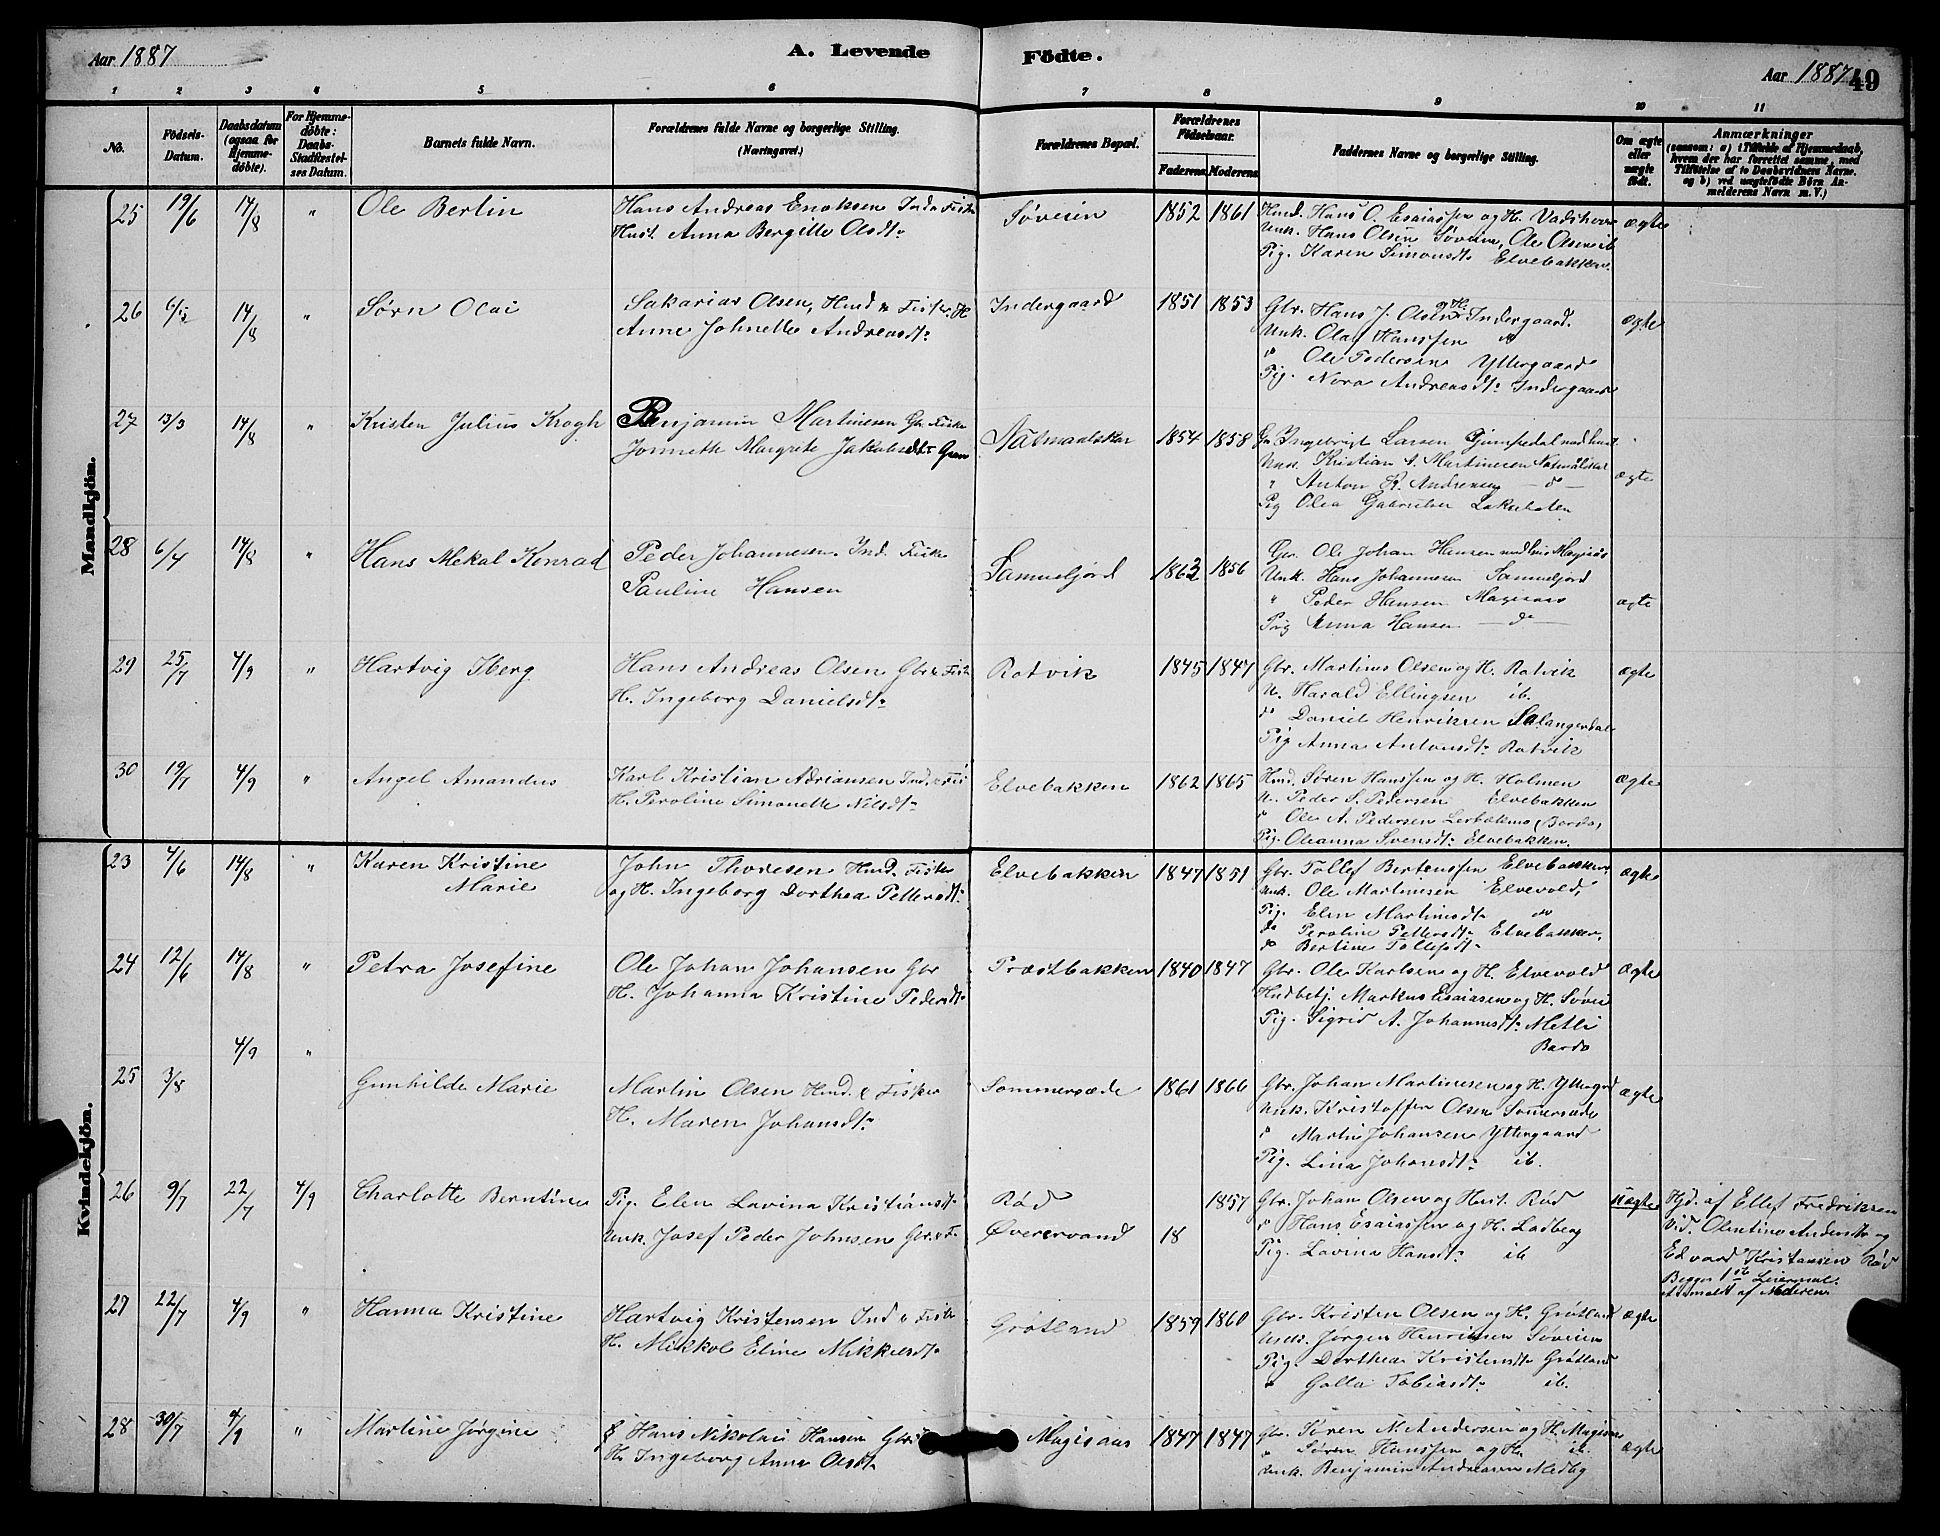 Aar 1887
A. Levende
Födte.
Aar 1887
49
1 2 3 4 5 6 7 8 9 10 11
No.
Födsels-
Datum.
Daabsdatum
(ogsaa for
Hjemme-
döbte).
For Hjemme-
döbte:
Daabs-
Stadfæstel-
ses Datum.
Barnets fulde Navn.
Forældrenes fulde Navne og borgerlige Stilling.
(Næringsvei.)
Forældrenes Bopæl.
Forældrenes
Födselsaar.
Faderens Moderens
Faddernes Navne og borgerlige Stilling.
Om ægte
eller
uægte
födt.
Anmærkninger
(saasom: a) i Tilfælde af Hjemmedaab,
hvem der har forrettet samme, med
Tilföielse af to Daabsvidners Navne.
og b) ved uægtefödte Börn An-
melderens Navn m. V.)
Mandkjön.
25 19/6 14/8 " Ole Bertin
Hans Andreas Enoksen Ind & Fisker
Hust. Anna Bergitte Olsdt.
Søveien 1852 1861
Hmd. Hans O. Esaiassen og H. Vadshaug
Unk. Hans Olsen Søveien, Ole Olsen ib
Pig. Karen Simonsdt. Elvebakken.
ægte
26 14/8 " Sørn Olai
Sakarias Olsen, Hmd & Fisker. H
Anne Johnette Andreasdt.
Indergaard 1851 1853
Gbr. Hans J. Olsen og H. Indergaard.
Unk. Olaf Hanssen do
do Ole Pedersen Yttergaard
Pig. Nora Andreasdt. Indergaard
ægte
27 13/3 14/8 " Kristen Julius Krogh
Benjamin Martinesen Gbr Fisker
Jonneth Margrete Jakobsdt.
Natmaalskar 1854 1858
Gbr Ingebrigt Larsen Gjumpedal med hust
Unk. Kristian A. Martinesen Natmålskar
" Anton R. Andresen — d —
Pig Olea Gabrielsen
ægte
28 6/4 14/8 " Hans Mekal Konrad
Peder Johannesen. Ind. Fisker
Pauline Hansen
Samuelfjord 1862 1856
Gbr. Ole Johan Hansen med hus Magisaas
Unk. Hans Johannesen Samuelfjord
" Peder Hansen Magisaas
Pig Anna Hansen — d —
ægte
29 25/7 4/9 " Hartvig Iberg
Hans Andreas Olsen Gbr & Fisk
H. Ingeborg Danielsdt.
Rotvik 1845 1847
Gbr. Martinus Olsen og H. Rotvik
U. Harald Ellingsen ib.
do Daniel Henriksen Salangerdal
Pig Anna Antonsdt. Rotvik
ægte
30 19/7 4/9 " Angel Amandus
Karl Kristian Adriansen Ind. & Fis
H. Peroline Simonette Nilsdt.
Elvebakken 1862 1865
Hmd. Søren Hanssen og H. Holmen
U. Peder S. Pedersen Elvebakken
do Ole A. Pedersen Bardo,
Pig. Oleanna Svensdt. Elvebakken.
ægte
Kvindekjön.
23 4/6 14/8 " Karen Kristine
Marie
John Thoresen Hmd. Fisker
og H. Ingeborg Dorthea Pettersdt.
Elvebakken 1847 1851
Gbr. Tollef Bertenssen Elvebakken
Unk. Ole Martinesen Elvevold,
Pig. Elen Martinesdt. do
do Peroline Pettersdt. Elvebakken,
do Bertine Tollefsdt.
ægte
24 12/6 14/8 " Petra Josefine
Ole Johan Johansen Gbr
H. Johanna Kristine Pedersdt.
Præstbakken 1840 1847
Gbr. Ole Karlsen og H. Elvevold
Hmdbetj. Markus Esaiasen og H. Søvei
Pig. Sigrid A. Johannesdt. Metli
Bardo
ægte
4/9 "
25 3/8 Gunhilde Marie
Martin Olsen Hmd. & Fisker
H. Maren Johansdt.
Sommersæde 1861 1866
Gbr. Johan Martinesen og H. Yttergrd
Unk. Kristoffer Olsen Sommersæde
do Martin Johansen Yttergaard
Pig. Lina Johansdt. ib.
ægte
26 9/7 22/7 4/9 Charlotte Berntine
Pig. Elen Lavina Kristiansdt.
Unk. Josef Peder Johnsen Gbr. & F.
Rød
Øverervand 18 1857
Gbr. Johan Olsen og Hust. Rød
do Hans Esaiassen og H. Ladberg
Pig. Lavina Hansdt. ib
uægte
Hjd. af Ellef Fredriksen
Vid. Olentine Andersdtr og
Edvard Kristiansen Rød
Begges 1ste Leiermaal.
af Moderen
27 22/7 4/9 " Hanna Kristine
Hartvig Kristensen Ind & Fisk
H. Mikkol Eline Mikkelsdt.
Grøtland 1859 1860
Gbr. Kristen Olsen og H. Grøtland
Unk. Jørgen Henriksen Søveien
Pig. Dorthea Kristensdt. Grøtland
" Golla Tobiasdt. ib.
ægte
28 30/7 4/9 " Martine Jørgine
Hans Nikolai Hansen Gbr
H. Ingeborg Anna Olsdt.
Magisaas 1847 1847
Gbr. Søren N. Andersen og H. Magisaas
" Søren Hanssen og H. ib.
Unk. Benjamin Andreasen Medby
ægte